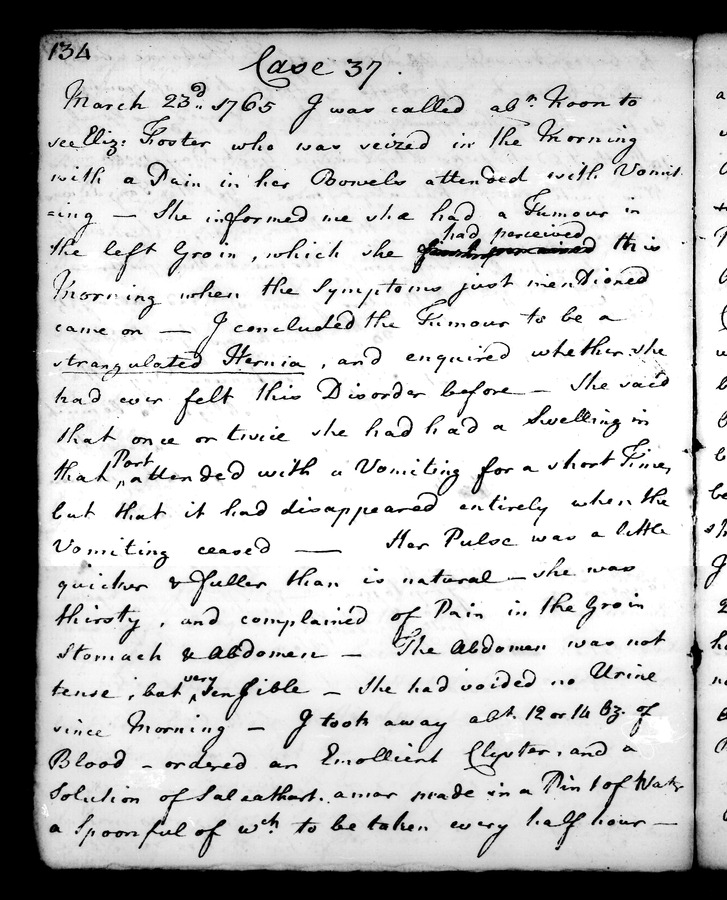 134
Case 37.
March 23d. 1765 I was called abt. Noon to
see Eliz: Foster who was seized in the Morning
with a Pain in her Bowels attended with Vomit
=ing — She informed me she had a Tumour in
the left Groin, which she had perceived this
Morning when the Symptoms just mentioned
came on — I concluded the Tumour to be a
strangulated Hernia, and enquired whether she
had ever felt this Disorder before — She said
that once or twice she had had a Swelling in
that Part attended with a Vomiting for a short Time,
but that it had disappeared entirely when the
Vomiting ceased — Her Pulse was a little
quicker & fuller than is natural — she was
thirsty, and complained of Pain in the Groin
Stomach & Abdomen — The Abdomen was not
tense, but very sensible — She had voided no Urine
since Morning — I took away abt. 12 or 14 oz. of
Blood — ordered an Emollient Clyster, and a
Solution of Sal cathart. amar made in a Pint of Water
a Spoonful of wch. to be taken every half hour —